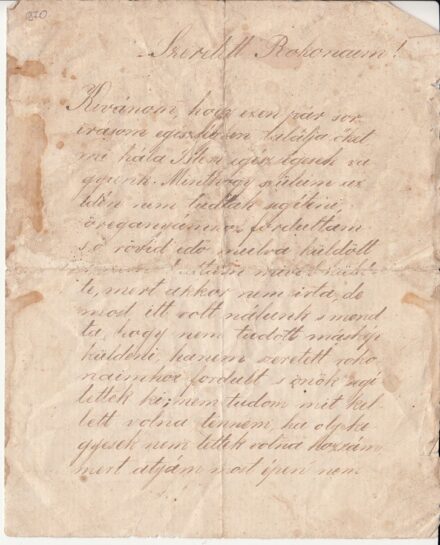 270
Szeretett Rokonaim!
Kivánom, hogy ezen pár sor
irásom egészségben találja őket
mi hála Isten egészségesek va
gyunk. Minthogy szüleim az
idén nem tudtak segiteni
öreganyámhoz fordultam
s ő rövid idő mulva küldött
te, mert akkor nem irta, de
most itt volt nálunk s mond
ta, hogy nem tudott máskép
küldeni, hanem szeretett roko
naimhoz fordult s önök segi
lettek volna tennem, ha oly ke
gyesek nem lettek volna hozzám
mert atyám most épen nem